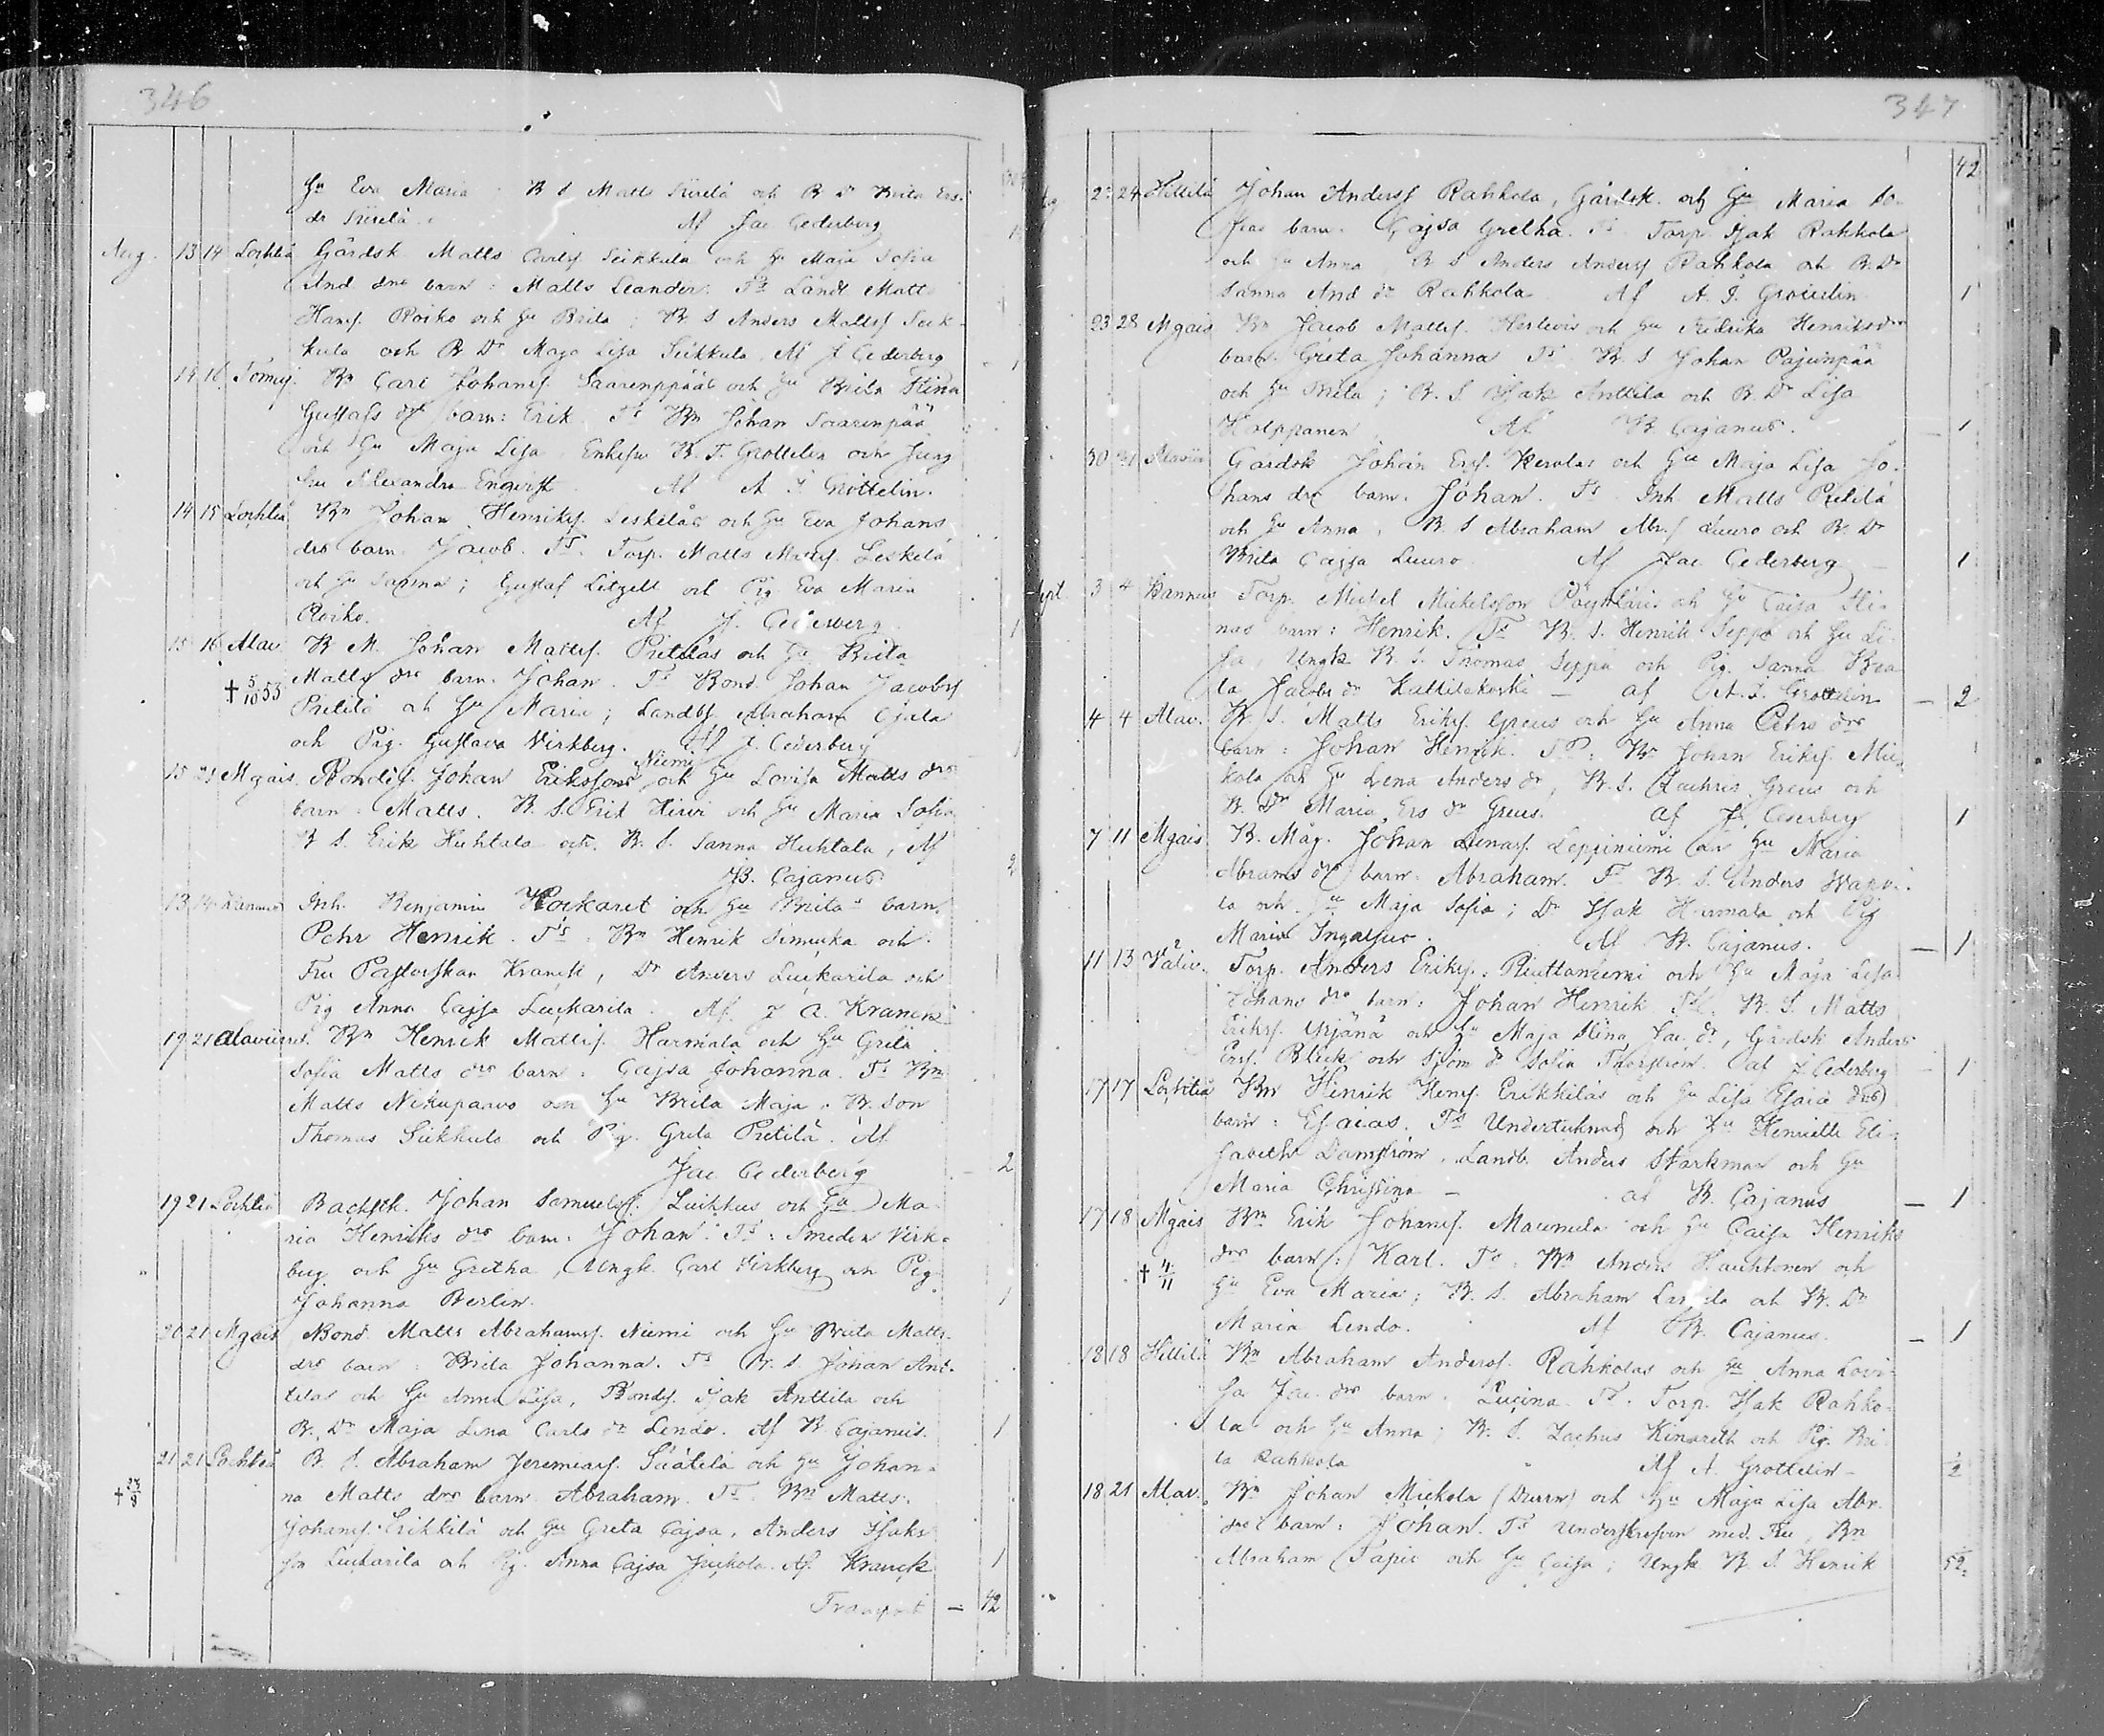 346
Hu Eva Maria B S Matts Siirilä och B Dr Brita Ers
dr Siirilä. Af Jac Cederberg
Aug. 13 14 Lochteå Gårdsk Matts Carlss Siikkula och Hu Maja Sofia
And drs barn: Matts Leander. Ts Landt Matts
Hanss. Roiko och Hu Brita; B S Anders Mattss Siik-
kula och B Dr Maja Lisa Siikkula. Af J Cederberg 1
14 16 Bn Carl Johanss. Saarenpääs och Hu Brita Stina
Gustafs drs barn: Erik. Ts Bn Johan Saarenpää
och Hu Maja Lisa, B. T. Grottelin och Jung
fru Alexandra Engvist Af A. J. Grottelin.
14 15 Lochteå Bn Johan Henrikss. Leskeläs och Hu Eva Johans
drs barn. Jacob. Ts. Torp. Matts Mattss. Leskelä
och Hu Sanna; Gustaf Litzell och Pig Eva Maria
Roiko. Af J. Cederberg 1
15 16 Alav. B M. Johan Mattss. Pietiläs och Hu Brita
† 5/10 53 Matts drs barn. Johan. Ts Bond. Johan Jacobss
Pietilä och Hu Maria; Landbs. Abraham Ojala
och Pig. Gustava Virkberg. Af J. Cederberg 1
Niemi
15 21 Mgais. Bondes. Johan Erikssons och Hu Lovisa Matts drs
barn: Matts. B. S. Erik Hirvi och Hu Maria Sofia
B S. Erik Huhtala och B. S. Sanna Huhtala, Af
B. Cajanus 2
13 14 Kannus Inh. Benjamin och Hu Brita barn.
Pehr Henrik. Ts. Bn Henrik Simuka och
Fru Pastorskan Kranck, Dr Anders Luckarila och
Pig Anna Cajsa Luckarila. Af J A. Kranck
19 21 Alaviirret. Bn Henrik Mattss. Harmala och Hu Greta
Sofia Matts drs barn: Cajsa Johanna. Ts Bn
Matts Nikupaavo och Hu Brita Maja, B. Son
Thomas Siikkula och Pig. Greta Pietilä. Af
Jac Cederberg 2
19 21 Lochteå Backstk. Johan Samuelss. Luikkus och Hu Ma
ria Henriks drs barn. Johan. Ts: Smeden Virk-
berg och Hu Gretha, Ungk. Carl Virkberg och Pig
Johanna Berlin. 1
20 21 Mgais Bond. Matts Abrahamss. Niemi och Hu Brita Matts-
drs barn: Brita Johanna. Ts B. S. Johan Ant-
tilas och Hu Anna Lisa, Bonds. Isak Anttila och
B. Dr Maja Lena Carls dr Lendo. Af B Cajanus. 1
21 21 Lochteå B. S. Abraham Jeremiass. Säätilä och Hu Johan-
na Matts drs barn Abraham. Ts. Bn Matts.
Johanss. Erikkilä och Hu Greta Cajsa, Anders Isaks
son Luckarila och Pig. Anna Cajsa Af Kranck 1
Transport — 42
347
42
24 Hillilä Johan Anderss Rahkola, Gårdsk. och Hu Maria So-
fias barn. Cajsa Gretha. Ts. Torp. Isak Rahkola
och Hu Anna, B S Anders Anderss Rahkola och B. Dr
Sanna And dr Rahkola Af A. J. Grottelin 1
23 28 Mgais Bn Jacob Mattss. Herlevis och Hu Fredrika Henriksdrs
barn. Greta Johanna Ts B. S Johan Pajunpää
och Hu Brita; B. S. Isak Anttila och B. Dr Lisa
Halppanen Af B. Cajanus. 1
30 31 Gårdsk Johan Erss. Kerolas och Hu Maja Lisa Jo-
hans drs barn. Johan. Ts Inh. Matts Pietilä
och Hu Anna, B. S Abraham Abr.s Luuro och B. Dr
Brita Cajsa Luuro Af Jac Cederberg 1
Sept. 3 4 Kannus Torp. Michel Mickelsson och Hu Cajsa Sti-
nas barn: Henrik. Ts B. S. Henrik Seppä och Hu Li-
sa, Ungk B. S. Thomas Seppä och Pig. Sanna Bri
ta Jacobs dr Kallilakoski — af A. J. Grottelin — 2
4 4 Alav. B. S. Matts Erikss. Greus och Hu Anna Pehrs drs
barn: Johan Henrik. Ts: Bn Johan Erikss. Mie
kola och Hu Lena Anders dr, B. S. Zachris Greus och
B. Dr Maria Ers dr Greus. af J. Cederberg 1
7 11 Mgais B. Måg. Johan Leppiniemi och Hu Maria
Abrams drs barn. Abraham. Ts B. S. Anders
la och Hu Maja Sofia; Dr Isak Harmala och Pig
Maria Af B. Cajanus. — 1
11 13 Torp. Anders Erikss. Piuttaniemi och Hu Maja Lisa
Johans drs barn: Johan Henrik. Ts. B. S. Matts
Erikss. Yrjänä och Hu Maja Stina Jac. dr, Gårdsk Anders
Erss. Bleck och dr Sofia Thorström. af J Cederberg 1
17 17 Lochteå Bn Henrik Henrs. Erikkiläs och Hu Lisa Esaia drs
barn: Esaias. Ts Undertecknad och Hu Henriette Eli-
sabeth Damström, Landb. Anders Starkman och Hu
Maria Christina — af B. Cajanus — 1
17 18 Mgais Bn Erik Johanss. Maunula och Hu Cajsa Henriks
† 4/11 drs barn: Karl. Ts: Bn Anders Hauhtonen och
Hu Eva Maria; B. S. Abraham och B. Dr
Maria Lendo. Af B. Cajanus. — 1
18 18 Hillilä Bn Abraham Anderss. Rahkolas och Hu Anna Lovi-
sa Jac. drs barn. Lucina. Ts. Torp. Isak Rahko-
la och Hu Anna; B. S. Zachris Kinareth och Pig. Bri
ta Rahkola Af A. Grottelin — 2
18 21 Alav. Bn Johan Miekola och Hu Maja Lisa Abr.
drs barn: Johan. Ts Underskrefven med Fru, Bn
Abraham och Hu Cajsa; Ungk B. S. Henrik 52